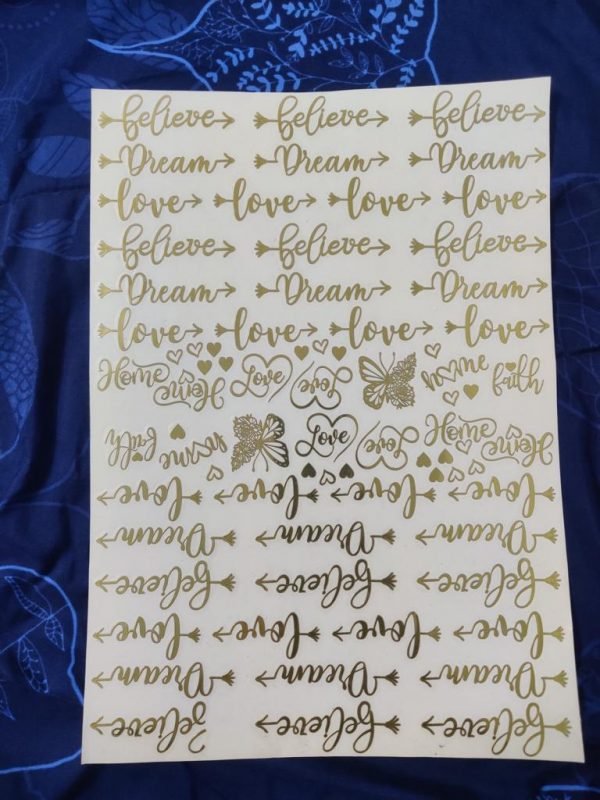 believe believe believe
Dream Dream Dream
love love love love
believe believe believe
Dream Dream Dream
love love love love
Home Home Love Love Home faith
faith Home Love Love Home Home
love love love love
Dream Dream Dream
believe believe believe
love love love love
Dream Dream Dream
believe believe believe